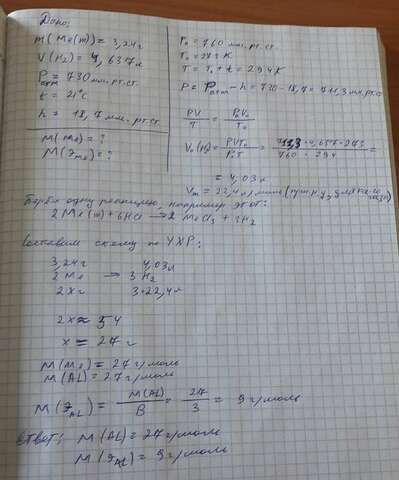 Дано:
m(Me(III)) = 3,24г
V(H₂) = 4,637л
Pатм = 730 мм.рт.ст.
t = 21°C
h = 18,7 мм.рт.ст.
M(Me) = ?
M(Эме) = ?
P₀ = 760 мм.рт.ст.
T₀ = 273 K
T = T₀ + t = 294K
P = Pатм - h = 730 - 18,7 = 711,3 мм.рт.ст
PV/T = P₀V₀/T₀
V₀(H₂) = PVT₀/P₀T = 711,3 · 4,637 · 273/760 · 294 =
= 4,03л
Vm = 22,4 л/моль (при н.у, для
газа)
Берём одну реакцию, например этот:
2Me(III) + 6HCl → 2MeCl₃ + 3H₂
Составим схему по УХР:
3,24г 4,03л
2Me → 3H₂
2x г 3·22,4л
2x ≈ 54
x = 27г
M(Me) = 27г/моль
M(AL) = 27г/моль
M(ЭAL) = M(AL)/B = 27/3 = 9г/моль
Ответ: M(AL) = 27г/моль
M(ЭAL) = 9г/моль